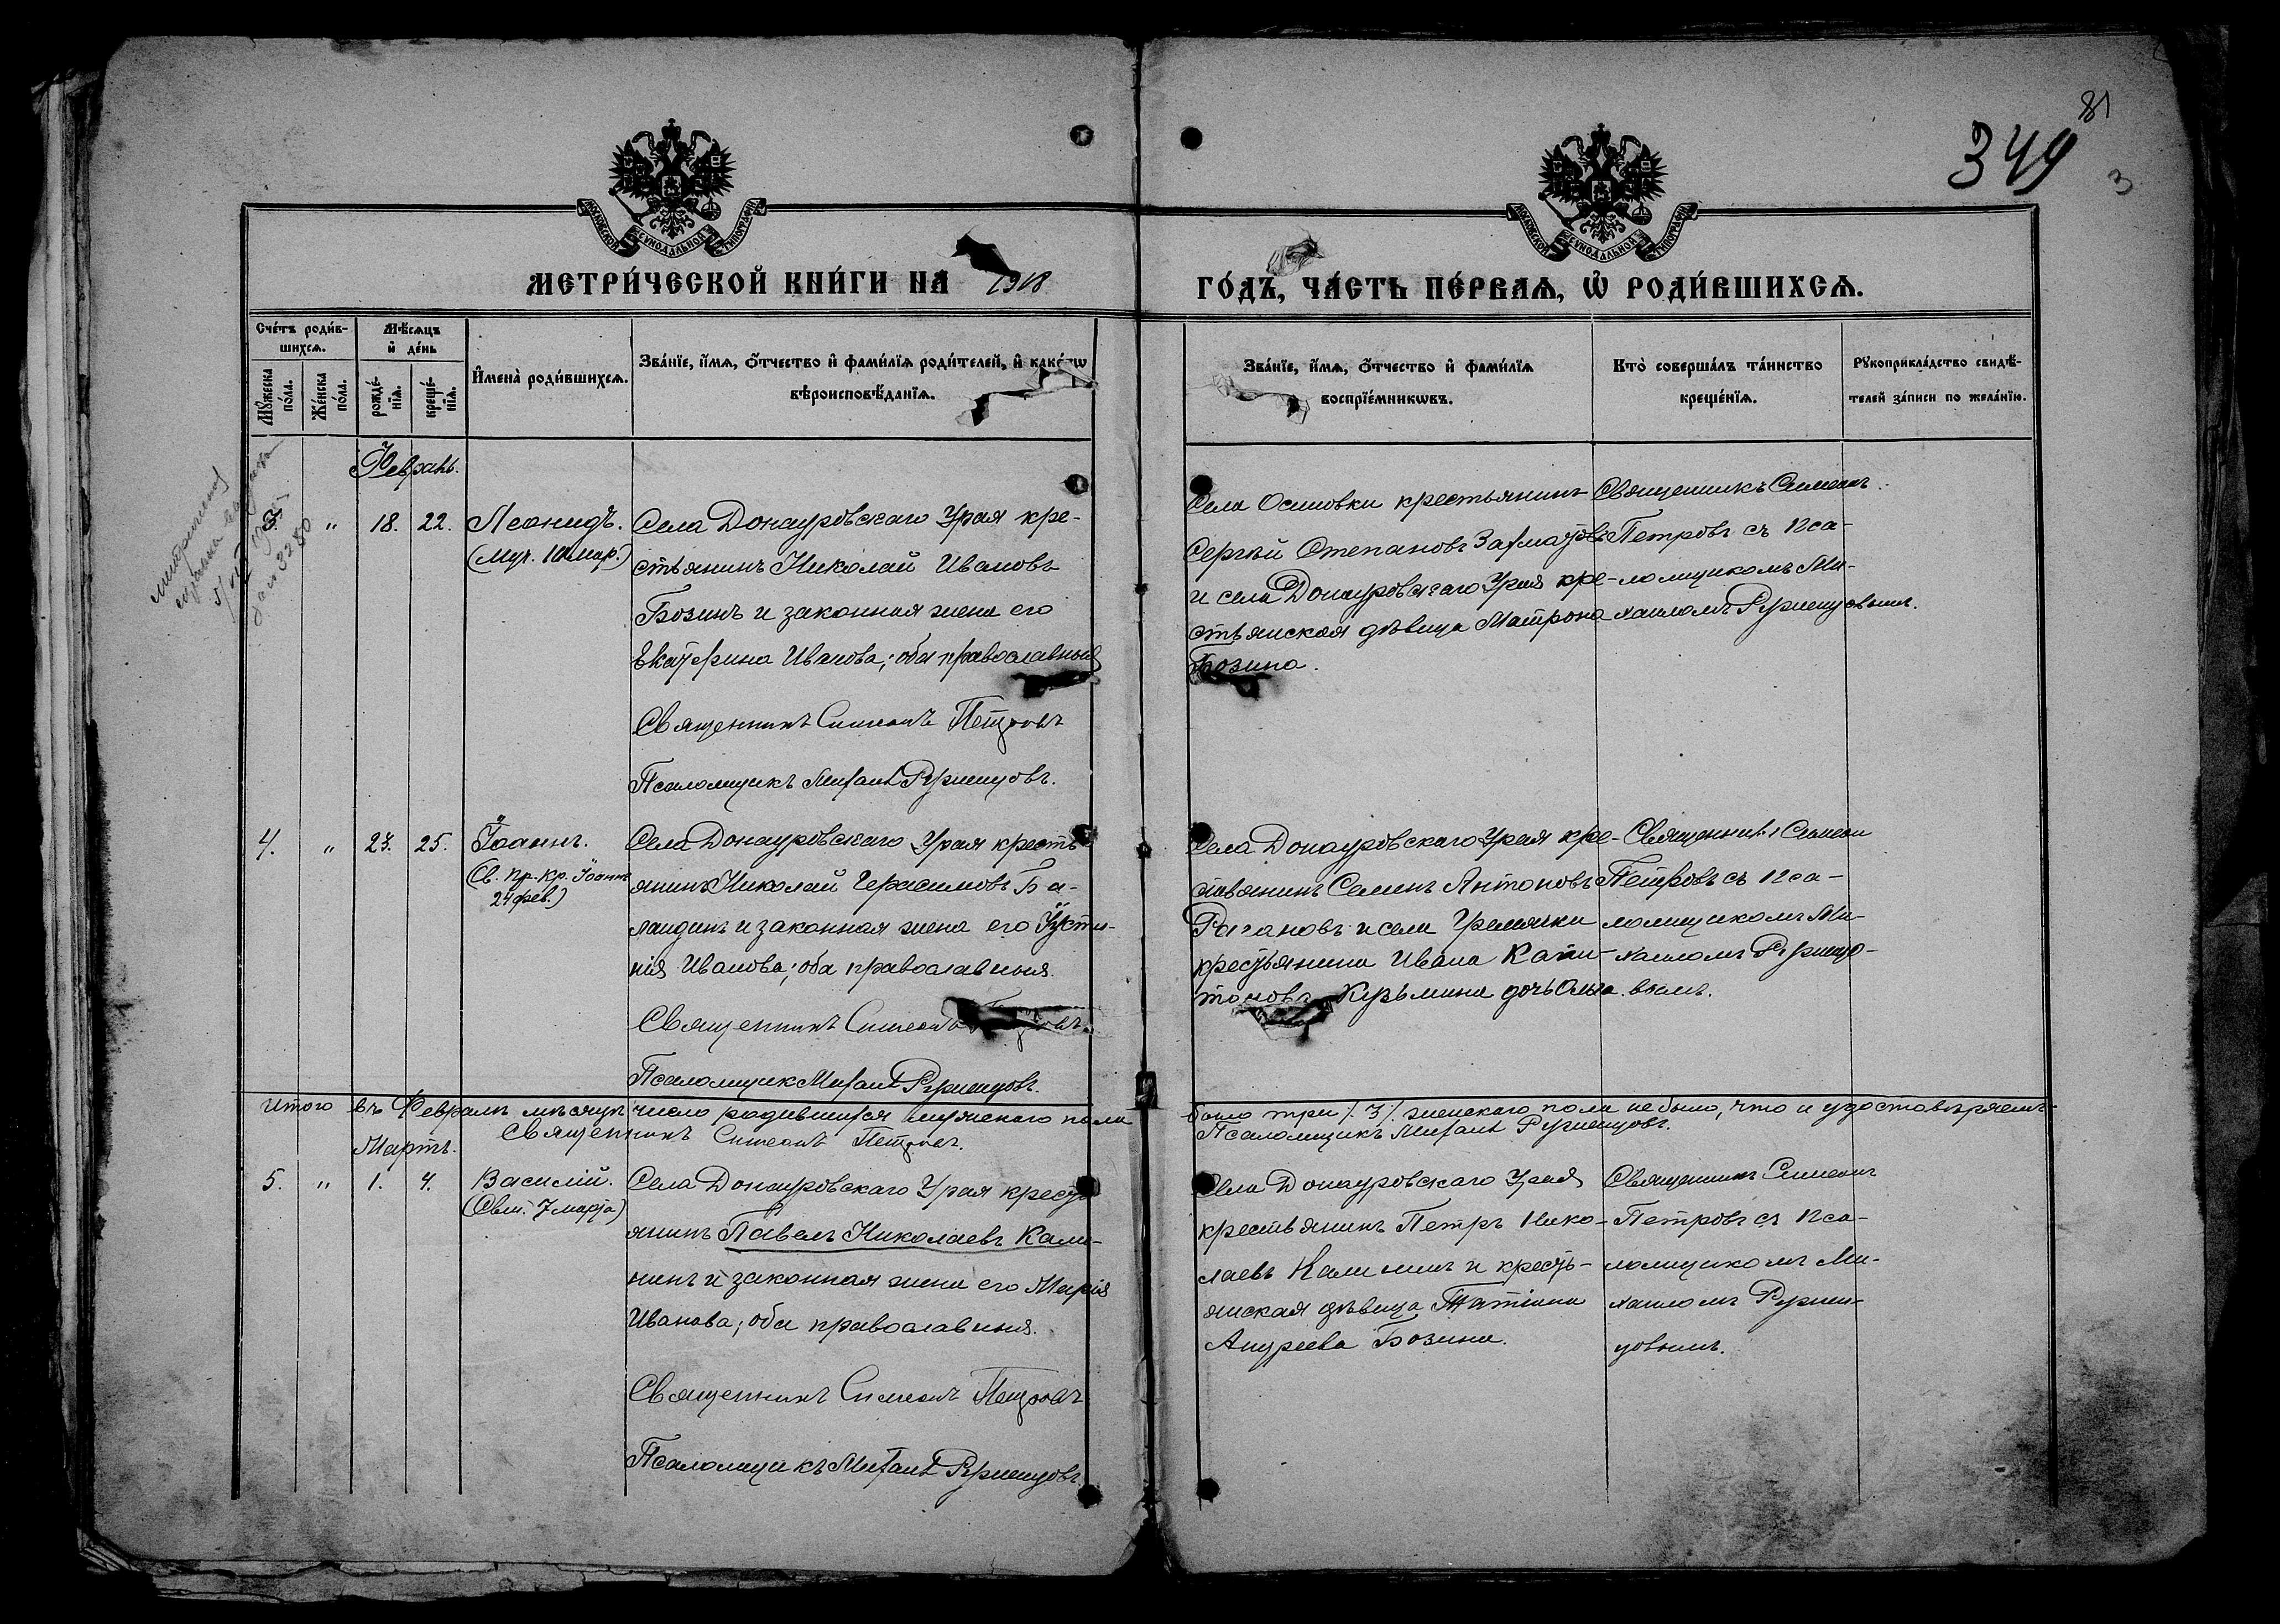 81
349
3
МОСКОВСКОЙ СѴНОДАЛЬНОЙ ТИПОГРАФІИ
МОСКОВСКОЙ СѴНОДАЛЬНОЙ ТИПОГРАФІИ
МЕТРИ́ЧЕСКОЙ КНИ́ГИ НА 1918
ГО́ДЪ, ЧА́СТЬ ПЕ́РВАѦ, Ѡ҆ РОДИ́ВШИХСѦ.
Сче́тъ роди́в-
шихсѧ.
Мꙋ́жеска по́ла.
Же́нска по́ла.
Мѣ́сѧцъ
и҆ де́нь
рожде́-
нїѧ.
креще́-
нїѧ.
И҆мена̀ роди́вшихсѧ.
Зва́нїе, и҆́мѧ, ѻ҆́тчество и҆ фами́лїѧ роди́телей, и҆ како́гѡ
вѣроисповѣ́данїѧ.
Зва́нїе, и҆́мѧ, ѻ҆́тчество и҆ фами́лїѧ
воспрїе́мникѡвъ.
Кто̀ соверша́лъ та́инство
креще́нїѧ.
Рꙋкоприкла́дство свидѣ́-
телей за́писи по жела́нїю.
Февраль.
3. " 18. 22. Леонидъ.
(Муч. 10 мар.)
Села Донауровскаго Урая кре-
стьянинъ Николай Ивановъ
Бозинъ и законная жена его
Екатерина Иванова; оба православныя
Священникъ Симеонъ Петровъ
Псаломщикъ Михаилъ Румянцовъ.
Села Осиновки крестьянинъ
Сергѣй Степановъ
и села Донауровскаго Урая кре-
стьянская дѣвица Матрона
Бозина.
Священникъ Симеонъ
Петровъ съ пса-
ломщикомъ Ми-
хаиломъ Румянцовымъ.
4. " 23. 25. Іоаннъ.
(Св. пр. Кр. Іоанн
24 фев.)
Села Донауровскаго Урая кресть
янинъ Николай Герасимовъ Ба-
ландинъ и законная жена его Іусти-
нія Иванова; оба православныя.
Священникъ Симеонъ Петровъ.
Псаломщик Михаилъ Румянцовъ.
Села Донауровскаго Урая кре-
стьянинъ Семенъ Антоновъ
Рагановъ и села Гремячки
крестьянина Ивана Капи-
тоновъ Кузьмина дочь Ольга.
Священникъ Симеон
Петровъ съ пса-
ломщикомъ Ми-
хаиломъ Румянцо-
вымъ.
Итого въ Февралѣ мѣсяцѣ число родившихся мужескаго пола
было три /3/ женскаго пола не было, что и удостовѣряемъ
Священникъ Симеонъ Петровъ.
Псаломщикъ Михаилъ Румянцовъ.
Мартъ.
5. " 1. 4. Василій.
(Свм. 7 марта)
Села Донауровскаго Урая кресть
янинъ Павелъ Николаевъ Кали-
нинъ и законная жена его Марія
Иванова; оба православныя.
Священникъ Симеонъ Петровъ
Псаломщикъ Михаилъ Румянцовъ.
Села Донауровскаго Урая
крестьянинъ Петръ Нико-
лаевъ Калининъ и кресть-
янская дѣвица Татіана
Андреева Бозина.
Священникъ Симеонъ
Петровъ съ пса-
ломщикомъ Ми-
хаиломъ Румян-
цовымъ.